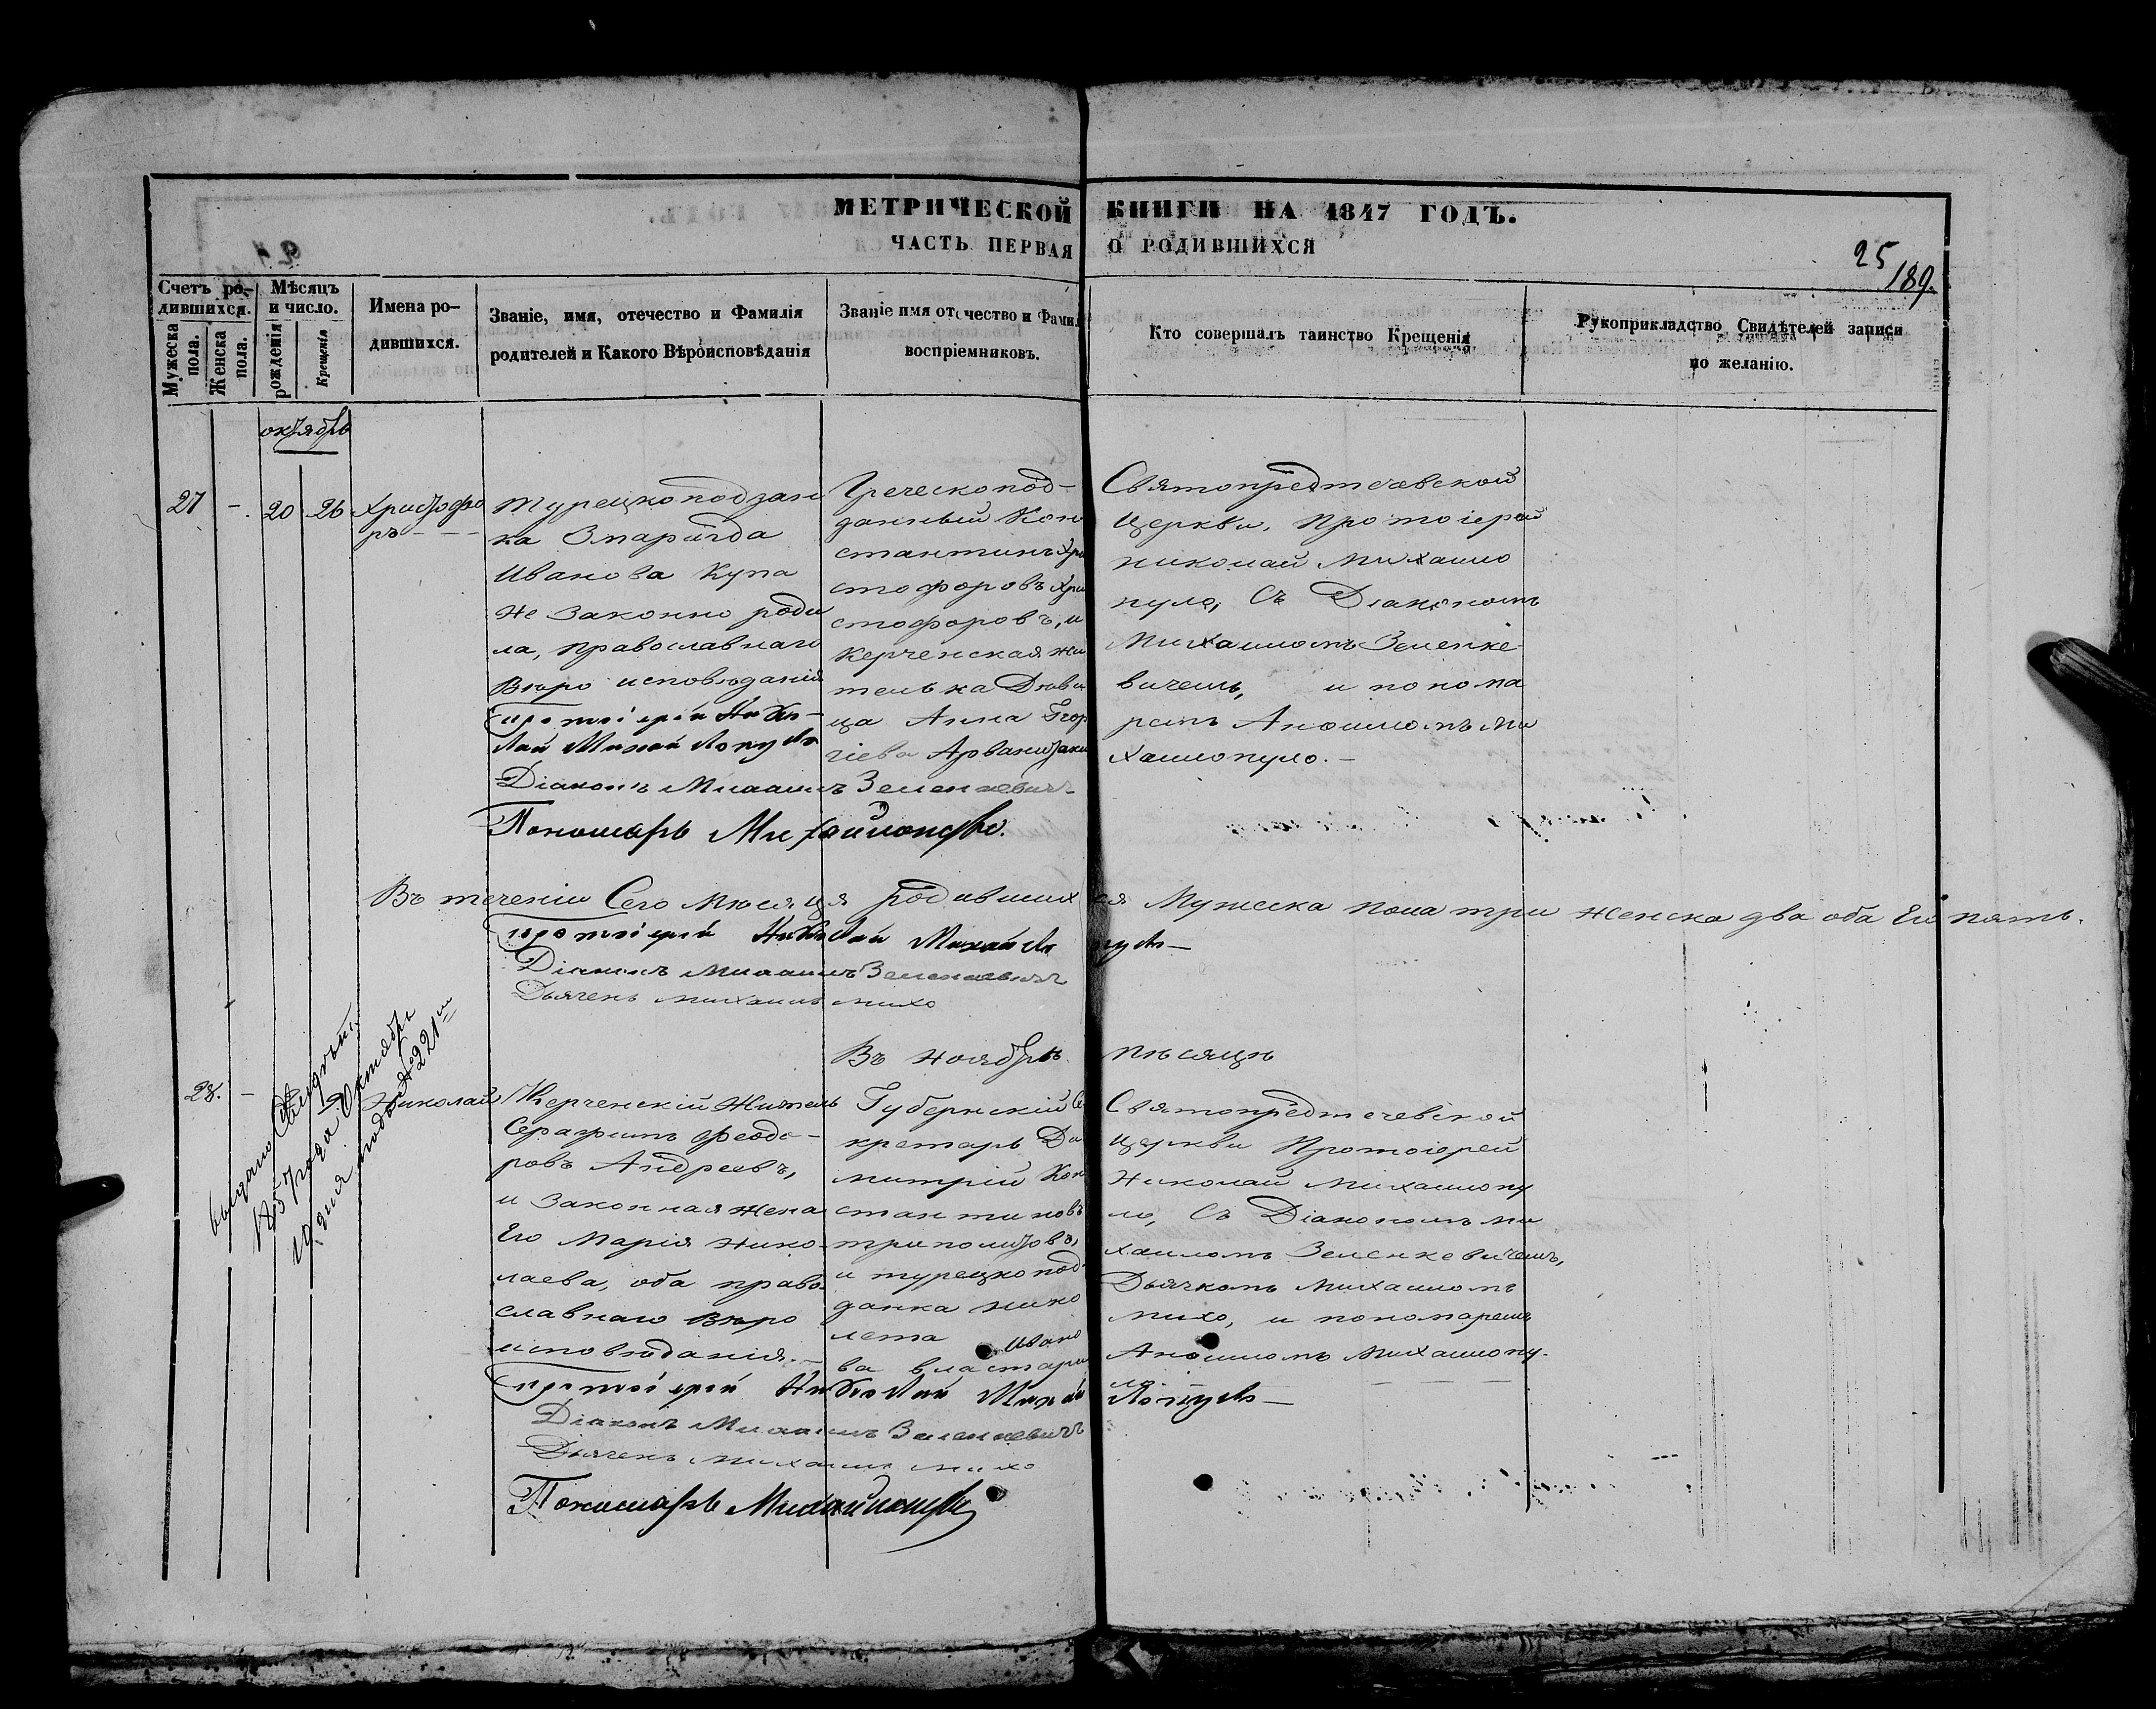 МЕТРИЧЕСКОЙ КНИГИ НА 1847 ГОДЪ.
ЧАСТЬ ПЕРВАЯ О РОДИВШИХСЯ
25
189.
Счетъ ро-
дившихся.
Мужеска пола.
Женска пола.
Мѣсяцъ
и число.
рожденія
Крещенія
Имена ро-
дившихся.
Званіе, имя, отечество и Фамилія
родителей и Какого Вѣроисповѣданія
Званіе имя отечество и Фамил
воспріемниковъ.
Кто совершалъ таинство Крещенія
Рукоприкладство Свидѣтелей записи
по желанію.
октябрь
27 - 20 26
Христофо
ръ - - -
Турецкоподдан
ка Змарагда
Иванова Купа
не законно роди
ла, православнаго
вѣро исповѣданія
Протоіерей Нико-
лай Михайлопуло
Діаконъ Михаилъ Зеленкевичъ
Пономарь Михайлопуло.
Греческопод-
данный Кон
стантинъ Хри
стофоровъ Хри
стофоровъ, и
Керченская жи
телька Дѣви
ца Анна Геор
гіева Арванитаки
Святопредтечевской
Церкви, Протоіерей
Николай Михаило
пуло, Съ Діакономъ
Михаиломъ Зеленке
вичемъ, и понома
ремъ Аношломъ Ми
хаилопуло.-
Въ теченіи Сего Мѣсяця родившихся Мужеска пола три женска два оба Его пять.
Протоіерей Николай Михайлопуло
Діаконъ Михаилъ Зеленкевичъ
Дьячекъ Михаилъ Михо
Въ Ноябрѣ Мѣсяцѣ
выдано
1857 года Октября
19 дня подъ № 221м
28. -
Николай
Керченскій Житель
Серафимъ Феодо-
ровъ Андреевъ,
и Законная жена
Его Марія Нико-
лаева, оба право-
славнаго вѣро
исповѣданія.-
Протоіерей Николай Михайлопуло
Діаконъ Михаилъ Зеленкевичъ
Дьячекъ Михаилъ Михо
Пономарь Михайлопуло
Губернскій Се
кретарь Ди
митрій Кон
стантиновъ
Триполитовъ,
и турецкопод-
данка Нико
лета Ивано
ва Властари
Святопредтечевской
Церкви Протоіерей
Николай Михаилопу
ло, Съ Діакономъ Ми
хаиломъ Зеленкевичемъ,
Дьячкомъ Михаиломъ
Михо, и пономаремъ
Аношломъ Михаилопу-
ло - - -